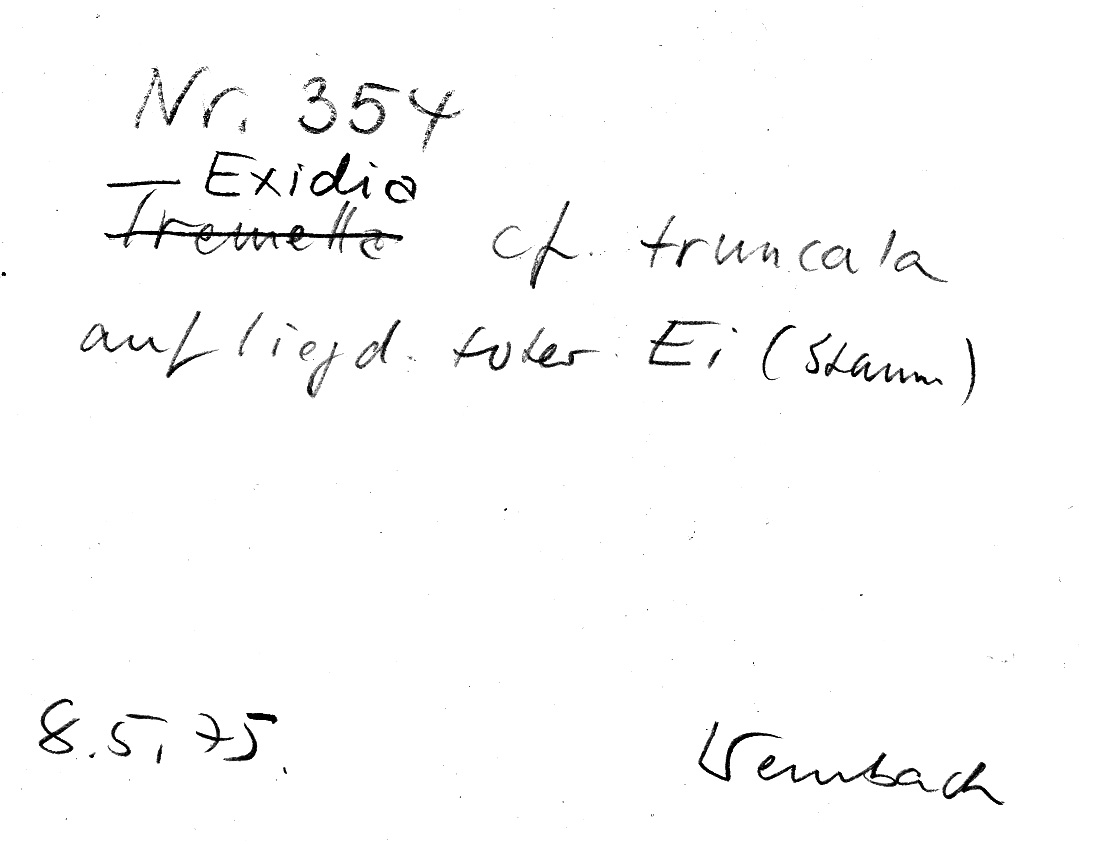 Nr. 354
— Exidia
Tremella cf. truncata
auf liegd. toter Ei (Stamm)
8.5.75.
Wembach